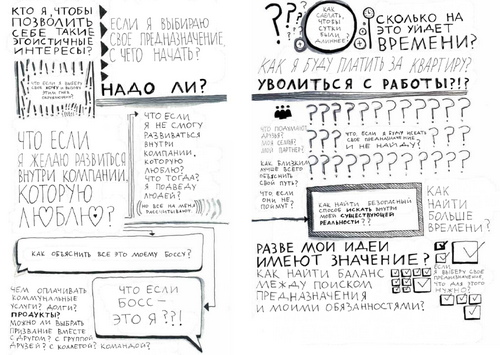 КТО Я, ЧТОБЫ
ПОЗВОЛИТЬ
СЕБЕ ТАКИЕ
ЭГОИСТИЧНЫЕ
ИНТЕРЕСЫ?
ЕСЛИ Я ВЫБИРАЮ
СВОЕ ПРЕДНАЗНАЧЕНИЕ,
С ЧЕГО НАЧАТЬ?
ЧТО ЕСЛИ Я ВЫБЕРУ
СВОЕ ХОЧУ И ВЫЗОВУ
НАДО ЛИ?
ЧТО ЕСЛИ
Я ЖЕЛАЮ РАЗВИТЬСЯ
ВНУТРИ КОМПАНИИ,
КОТОРУЮ
ЛЮБЛЮ?
ЧТО ЕСЛИ
Я НЕ СМОГУ
РАЗВИВАТЬСЯ
ВНУТРИ
КОМПАНИИ,
КОТОРУЮ
ЛЮБЛЮ?
ЧТО ТОГДА?
Я ПОДВЕДУ
ЛЮДЕЙ?
(НО ВСЕ НА МЕНЯ
РАССЧИТЫВАЮТ)
КАК ОБЪЯСНИТЬ ВСЕ ЭТО МОЕМУ БОССУ?
ЧЕМ ОПЛАЧИВАТЬ
КОММУНАЛЬНЫЕ
УСЛУГИ? ДОЛГИ?
ПРОДУКТЫ?
МОЖНО ЛИ ВЫБРАТЬ
ПРИЗВАНИЕ ВМЕСТЕ
С ДРУГОМ? С ГРУППОЙ
ДРУЗЕЙ? С КОЛЛЕГОЙ? КОМАНДОЙ?
ЧТО ЕСЛИ
БОСС —
ЭТО Я?!!
???
КАК
СДЕЛАТЬ,
ЧТОБЫ
СУТКИ
БЫЛИ
ДЛИННЕЕ?
СКОЛЬКО НА
ЭТО УЙДЕТ
ВРЕМЕНИ?
КАК Я БУДУ ПЛАТИТЬ ЗА КВАРТИРУ?
УВОЛИТЬСЯ С РАБОТЫ?!?
ЧТО ПОДУМАЮТ
ДРУЗЬЯ?
МОЯ СЕМЬЯ?
МОЙ ПАРТНЕР?
ЧТО, ЕСЛИ Я БУДУ ИСКАТЬ
СВОЕ ПРЕДНАЗНАЧЕНИЕ
И НЕ НАЙДУ?
КАК БЛИЗКИМ
ЛУЧШЕ ВСЕГО
ОБЪЯСНИТЬ
СВОЙ ПУТЬ?
ЧТО ЕСЛИ
ОНИ НЕ
ПРИМУТ?
КАК НАЙТИ БЕЗОПАСНЫЙ
СПОСОБ ИСКАТЬ ВНУТРИ
МОЕЙ СУЩЕСТВУЮЩЕЙ
РЕАЛЬНОСТИ??
КАК
НАЙТИ
БОЛЬШЕ
ВРЕМЕНИ?
РАЗВЕ МОИ ИДЕИ
ИМЕЮТ ЗНАЧЕНИЕ?
КАК НАЙТИ БАЛАНС
МЕЖДУ ПОИСКОМ
ПРЕДНАЗНАЧЕНИЯ
И МОИМИ ОБЯЗАННОСТЯМИ?
ЕСЛИ
Я ВЫБЕРУ СВОЕ
ПРЕДНАЗНАЧЕНИЕ,
ЧТО ДЛЯ ЭТОГО
НУЖНО?